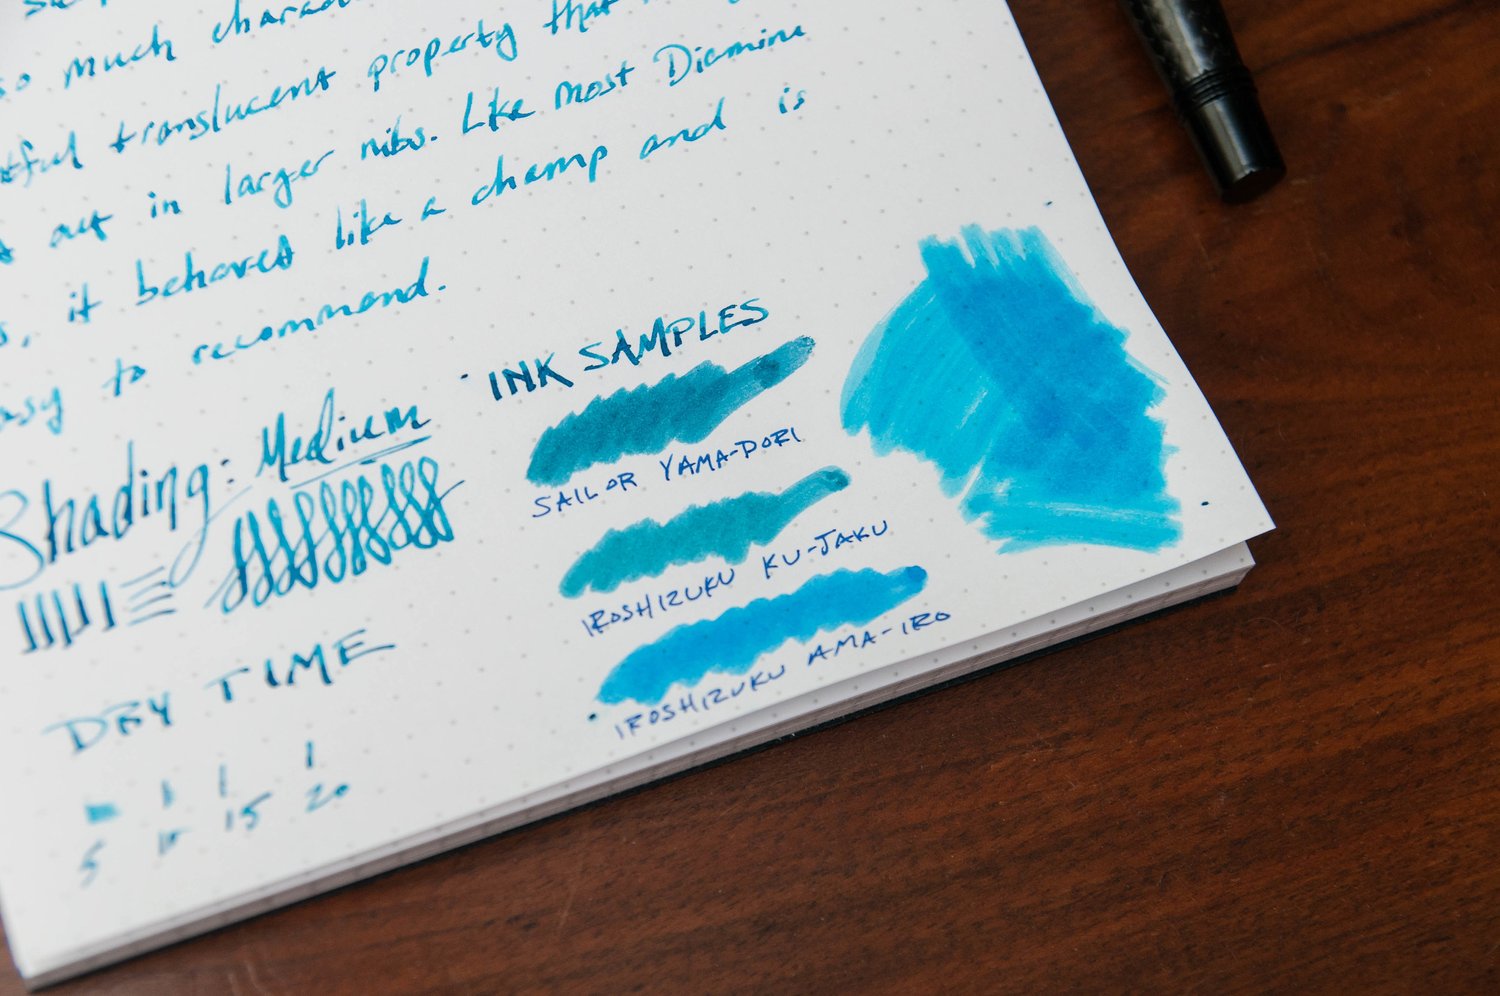 so much
translucent property that
out in larger nibs. Like most Diamine
it behaves like a champ and is
easy to recommend.
Shading: Medium
DRY TIME
5 10 15 20
INK SAMPLES
SAILOR YAMA-DORI
IROSHIZUKU KU-JAKU
IROSHIZUKU AMA-IRO